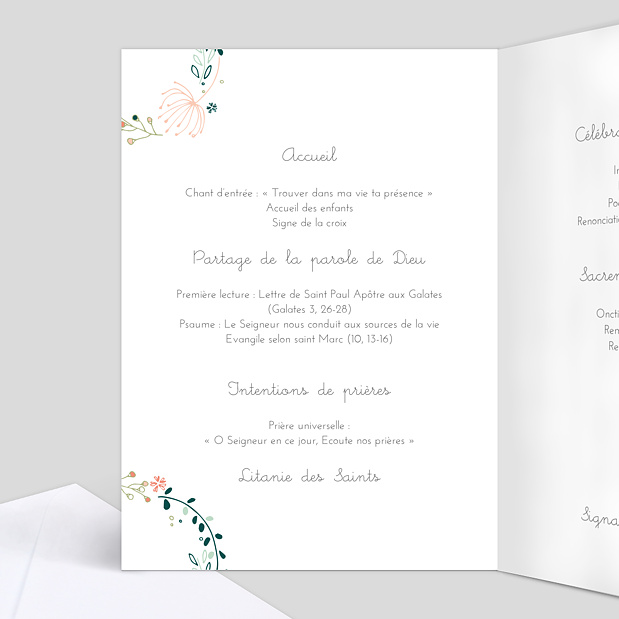 Accueil
Chant d'entrée : « Trouver dans ma vie ta présence »
Accueil des enfants
Signe de la croix
Partage de la parole de Dieu
Première lecture : Lettre de Saint Paul Apôtre aux Galates
(Galates 3, 26-28)
Psaume : Le Seigneur nous conduit aux sources de la vie
Evangile selon saint Marc (10, 13-16)
Intentions de prières
Prière universelle :
« O Seigneur en ce jour, Ecoute nos prières »
Litanie des Saints
Renonciati